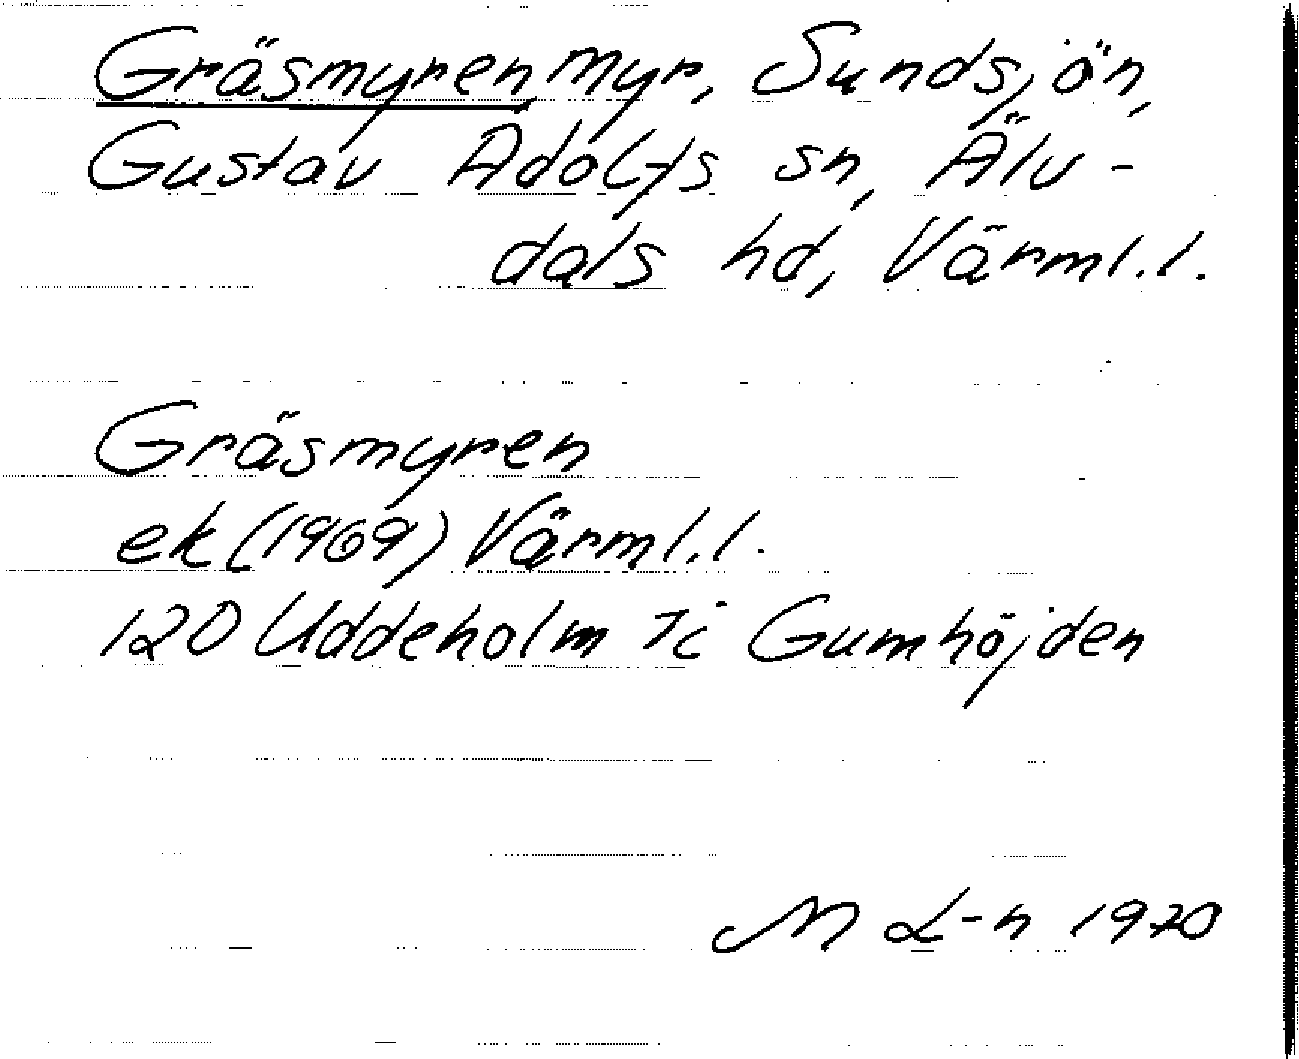 Gräsmyren myr, Sundsjön,
Gustav Adolfs sn, Älv-
dals hd, Värml.l.
Gräsmyren
ek (1969) Värml.l.
120 Uddeholm 7i Gumhöjden
M L-n 1970